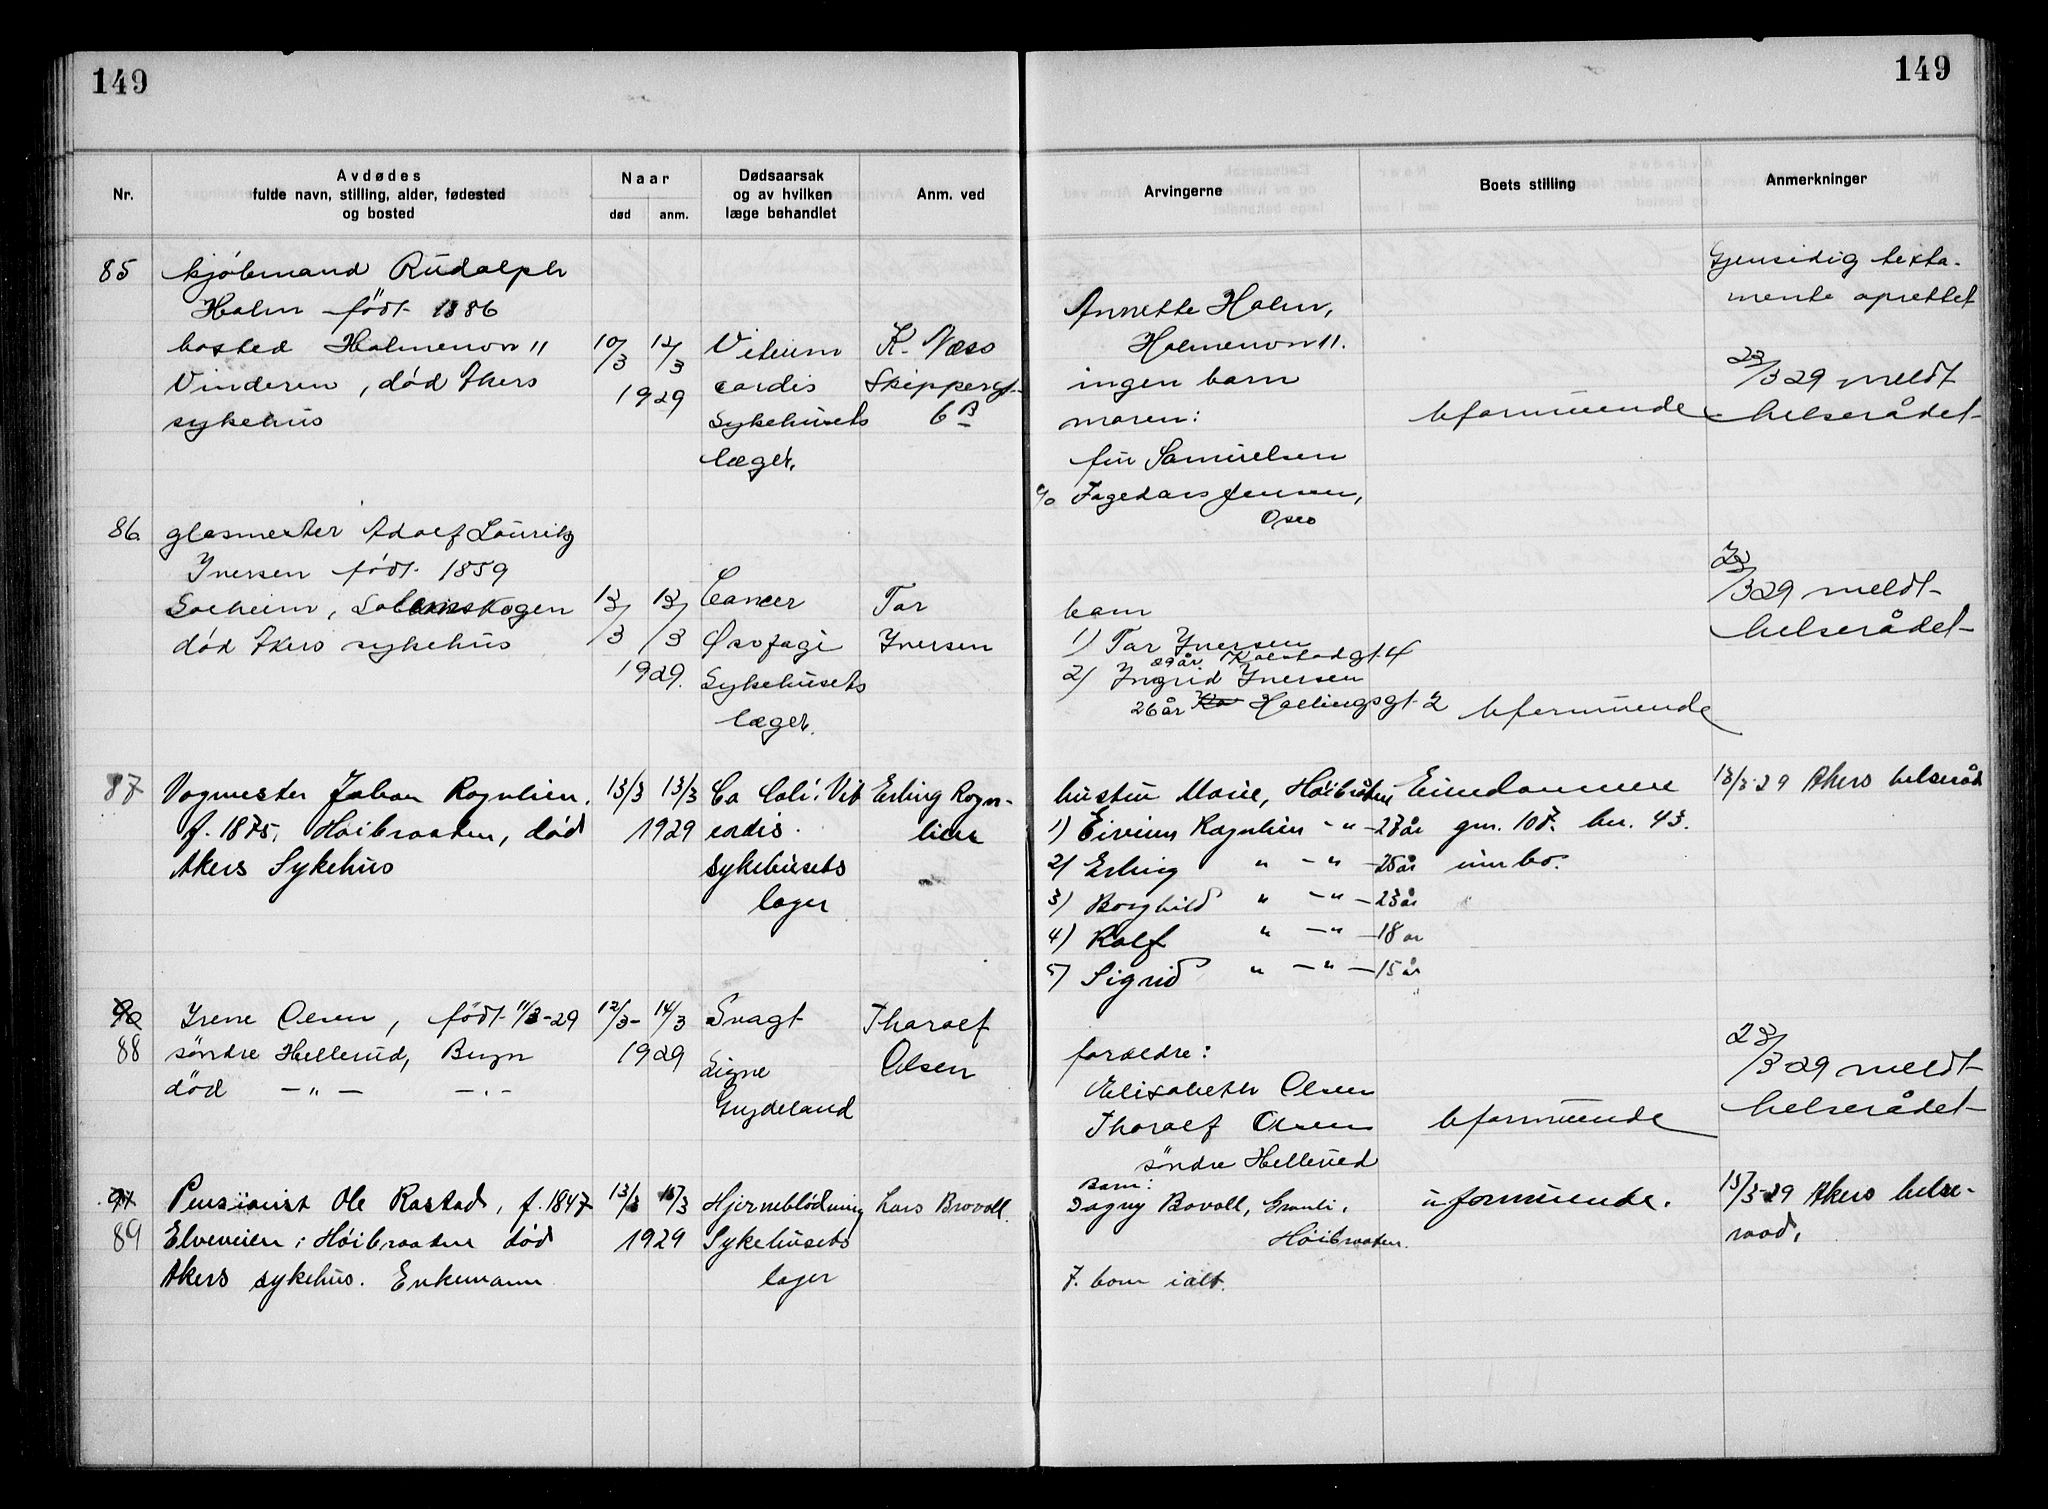 149
149
Nr.
Avdødes
fulde navn, stilling, alder, fødested
og bosted
Naar
død
anm.
Dødsaarsak
og av hvilken
læge behandlet
Anm. ved
Arvingerne
Boets stilling
Anmerkninger
85
kjøbmand Rudolph
Holm født 1886
bosted Holmenvn 11
Vinderen, død Akers
sykehus
10/3 12/3
1929
Vitium
cordis
Sykehusets
læger.
K. Næss
Skippergt.
6B
Annette Holm,
Holmenvn 11.
ingen barn
moren:
fru Samuelsen
c/o Jensen,
Oslo
uformuende
Gjensidig testa-
mente oprettet
23/3 29 meldt
helserådet
86
glasmester Adolf Lauritz
Iversen født 1859
Solheim,
død Akers sykehus
13/3 13/3
1929.
Cancer
Øsofagi
Sykehusets
læger.
Tor
Iversen
barn
1) Tor Iversen
29 år. Kolstadgt 4
2) Ingrid Iversen
26 år Hallingsgt. 2
uformuende
23/3 29 meldt
helserådet
87
Vognmester Johan Rognlien.
f. 1875, Høibraaten, død
Akers Sykehus
13/3 13/3
1929
Ca Coli. Vit
cordis.
sykehusets
læger
Erling Rogn-
lien
hustru Marie, Høibråten
1) Eivinn Rognlien -"- 27 år
2) Erling " -"- 25 år
3) Borghild " -"- 23 år
4) Rolf " -"- 18 år
5) Sigrid " -"- 15 år
Eiendommen
gnr. 107. bnr. 43.
innbo.
13/3-29 Akers helseråd
90
88
Irene Olsen, født 11/3-29
søndre Hellerud, Bryn
død -"- -"-
12/3- 14/3
1929
Svagt
Signe
Grydeland
Tharalf
Olsen
foreldre:
Elisabeth Olsen
Tharalf Olsen
søndre Hellerud
uformuende
23/3-29 meldt
helserådet
91
89
Pensionist Ole Rastad, f. 1847
Elveveien, Høibraaten død
Akers sykehus. Enkemann
13/3 15/3
1929
Hjerneblødning
Sykehusets
læger
Lars Brovoll.
Barn:
Dagny Bovoll, Granli,
Høibraaten.
7. barn ialt.
uformuende.
15/3-29 Akers helse-
raad.